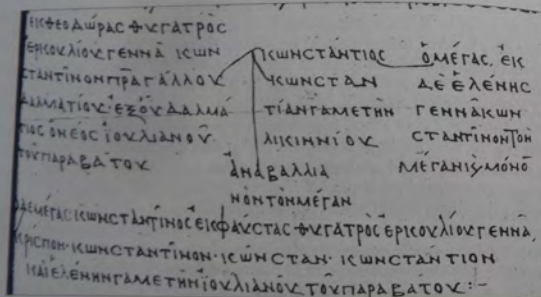 ἐκ θεοδώρας θυγατρὸς
ἑρκουλίου γεννᾶ κων
σταντῖνον πρα γάλλου
δαλματίου· ἐξ οὗ δαλμά
τιος ὁ νέος ἰουλιανοῦ
τοῦ παραβάτου
κωνστάντιος
κωνσταν
τίαν γαμετὴν
λικιννίου
ἀναβαλλια
νον τὸν μέγαν
ὁ μέγας, ἐκ
δὲ ἑλένης
γεννᾶ κων
σταντῖνον τὸν
μέγαν ϗ μόνο
ὁ δὲ μέγας κωνσταντῖνος ἐκ φαύστας θυγατρὸς ἑρκουλίου γεννᾶ,
κρίσπον· κωνσταντῖνον· κώνσταν· κωνστάντιον
καὶ ἑλένην γαμετὴν ἰουλιανοῦ τοῦ παραβάτου :-